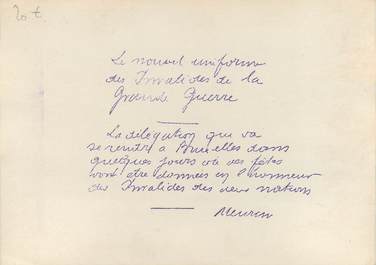 20 t.
Le nouvel uniforme
des Invalides de la
Grande Guerre
La délégation que va
se rendre à Bruxelles dans
quelques jours où des fêtes
vont être données en l'honneur
des Invalides des deux nations
Meurisse